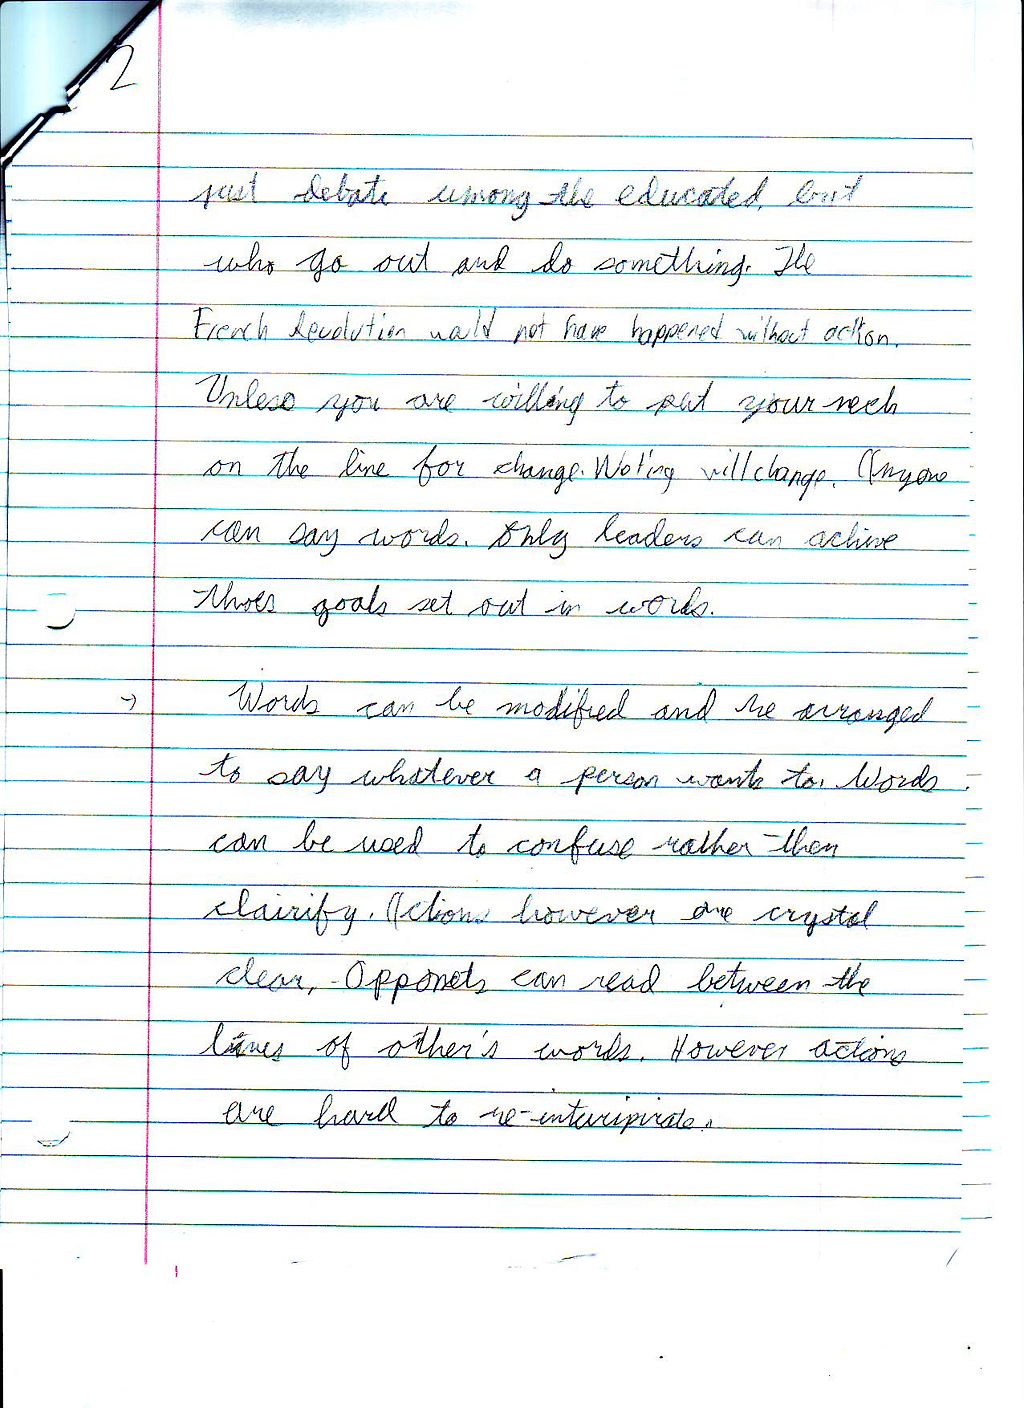 2
just debate among the educated, but
who go out and do something. The
French Revolution would not have happened without action.
Unless you are willing to put your neck
on the line for change. Woting will change. Anyone
can say words. Only leaders can achive
thoes goals set out in words.
→ Words can be modified and re arranged
to say whatever a person wants to. Words
can be used to confuse rather then
clairify. Actions however are crystal
clear, Opponets can read between the
lines of other's words. However actions
are hard to re-interipirate.